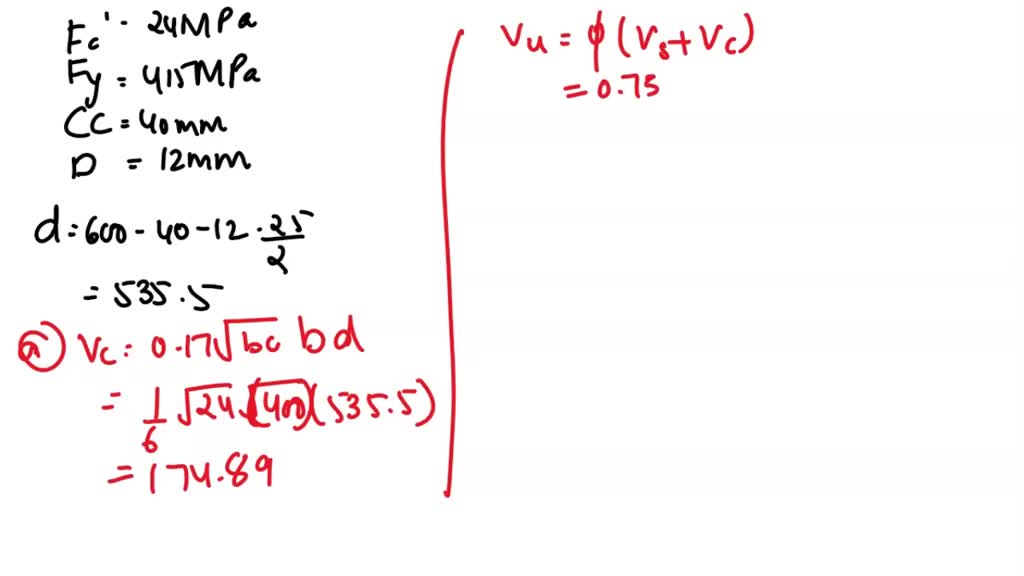 Fc' = 24MPa
Fy = 415MPa
CC = 40mm
D = 12mm
d = 600 - 40 - 12 - 25/2
= 535.5
a) Vc = 0.17√bc bd
= 1/6 √24 (400)(535.5)
= 174.89
Vu = φ(Vs + Vc)
= 0.75